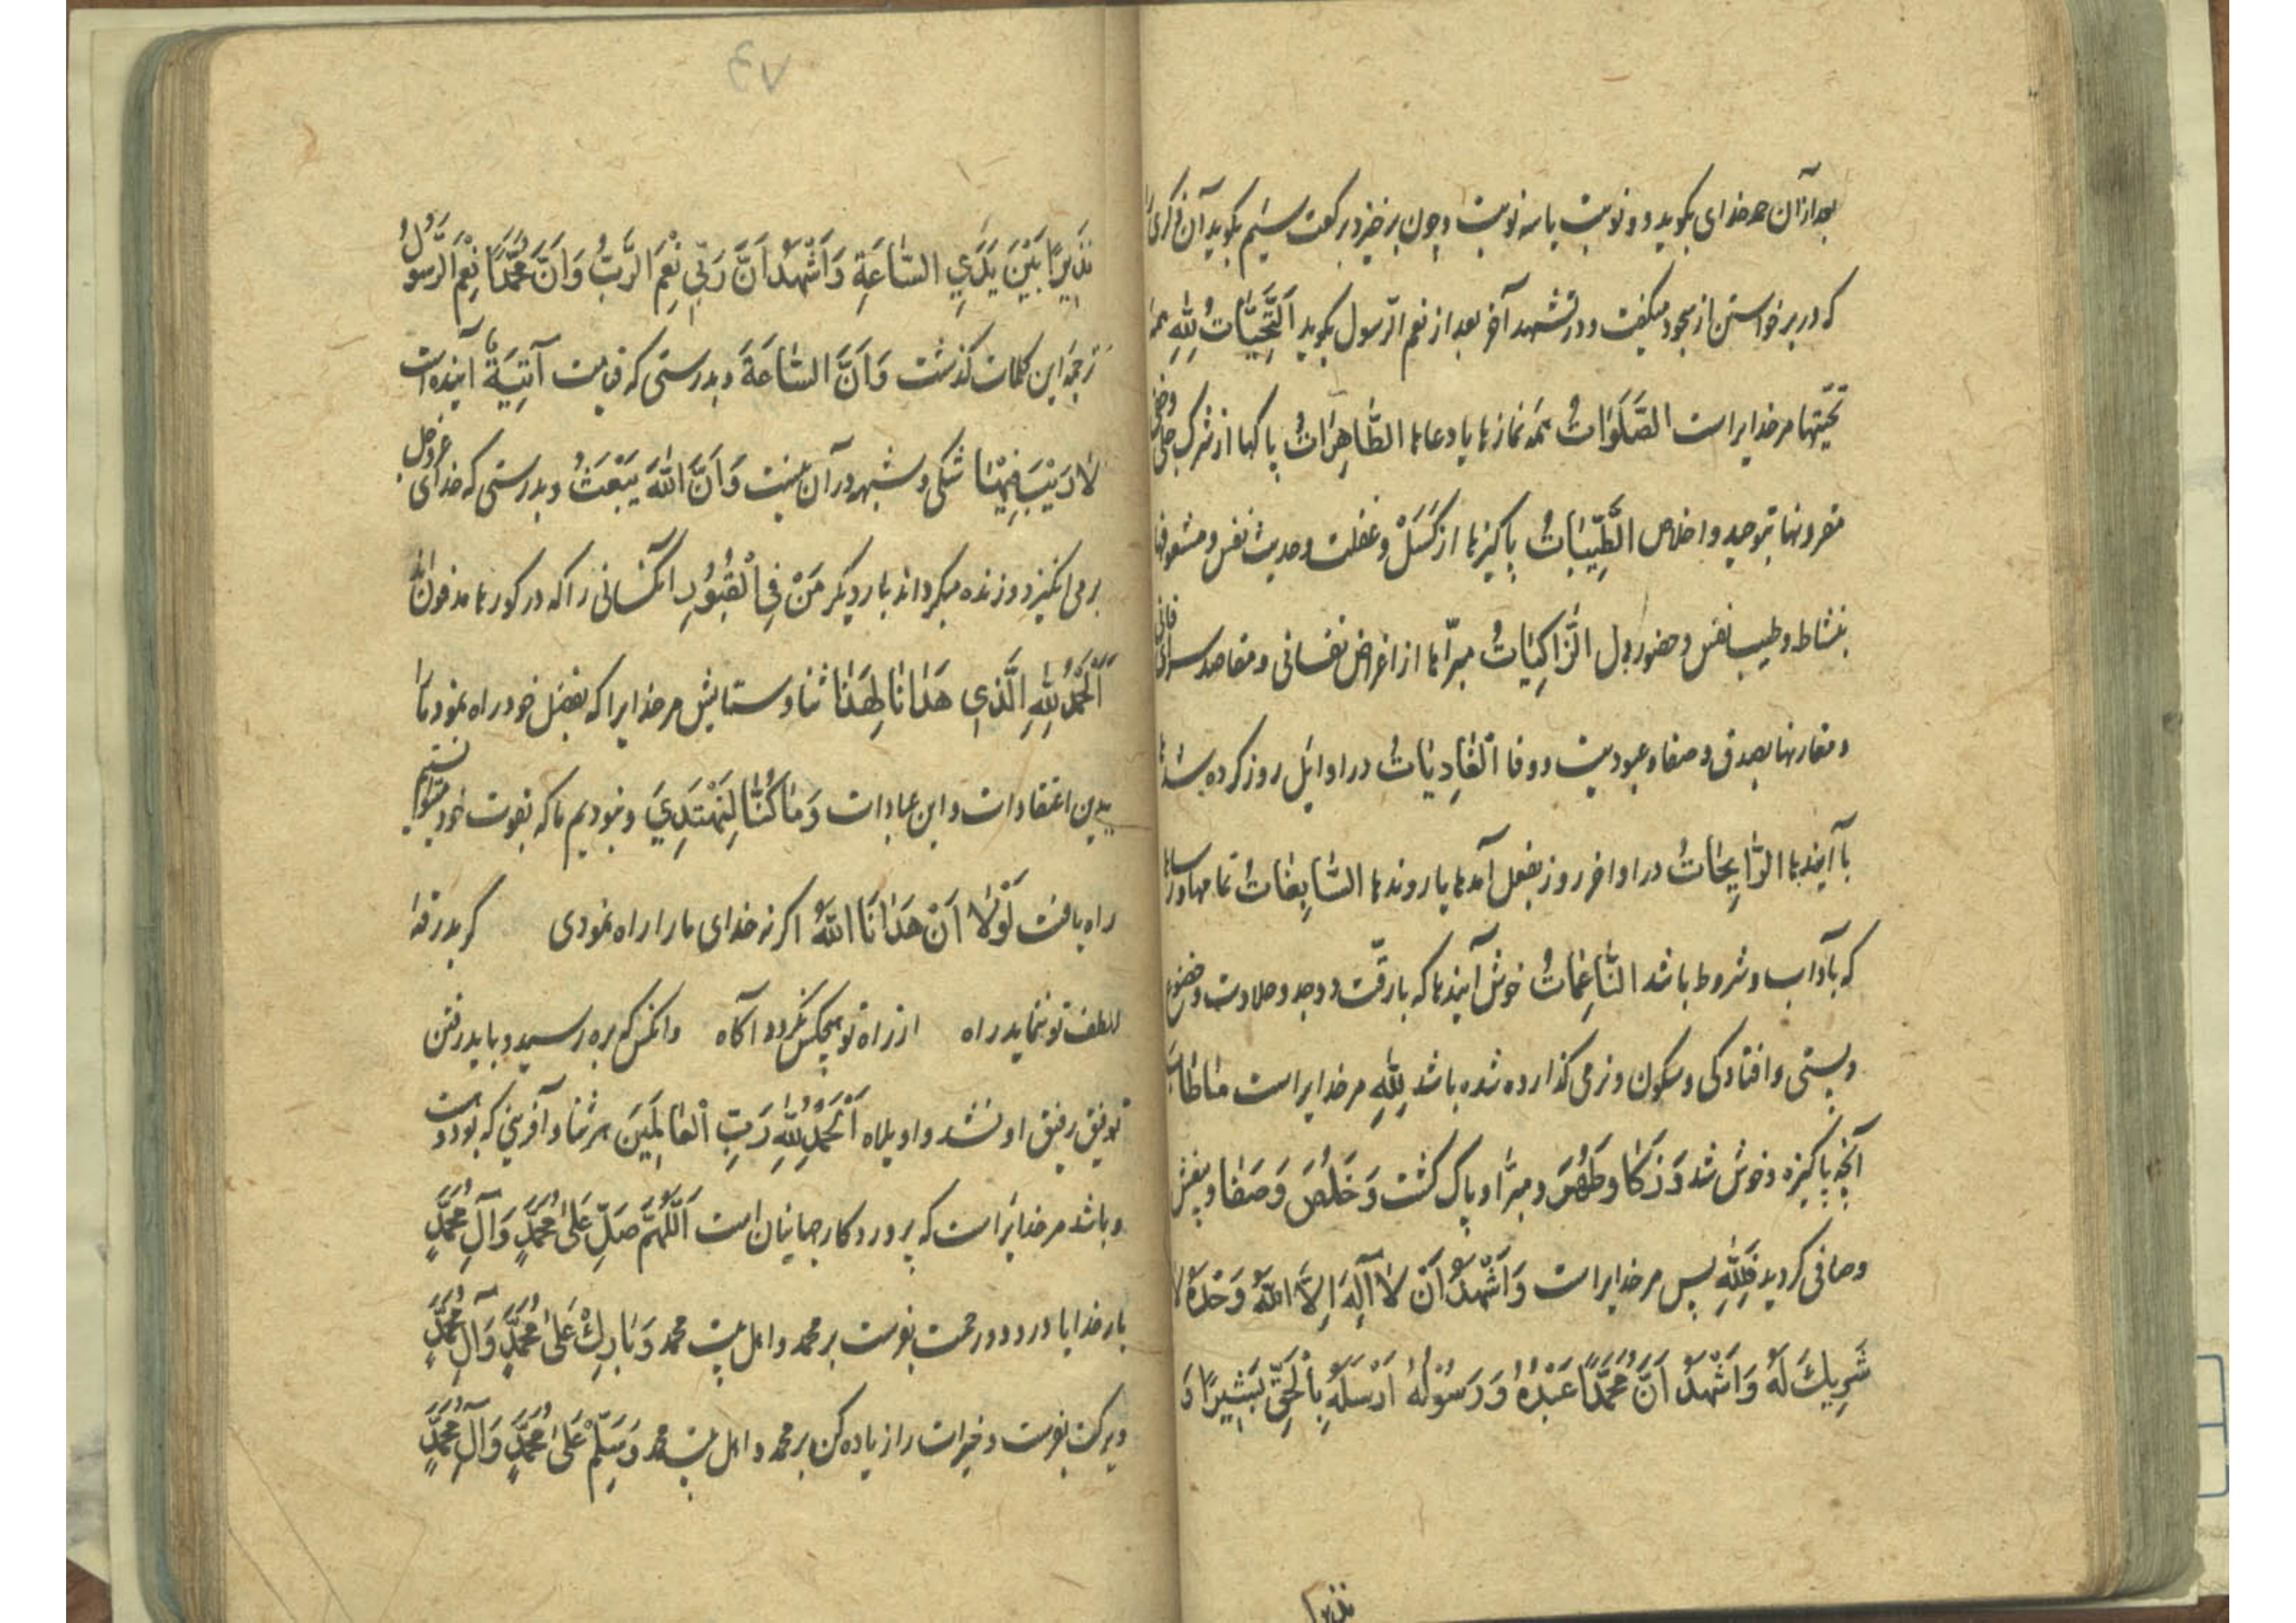 بعد ازان حمد خدای بکوید دو نوبت یا سه نوبت و چون برخیزد برکعت سیم بکوید آن ذکری
که در برخواستن از سجود میکفت و در تشهد آخر بعد از نعم الرّسول بکوید اَلتَّحِیَّاتُ لِلّٰهِ همه
تحیّتها مر خدایراست الصَّلَوٰاتُ همه نمازها یا دعاها الطَّاهِرٰاتُ پاکها از شرک جلی وخفی
مقرونها بتوحید و اخلاص الطَّیِّبٰاتُ پاکیزها از کَسَلْ و غفلت و حدیث نفس و مشعوفها
بنشاط و طیب نفس و حضور دل الزَّاکِیٰاتُ مبرّاها از اغراض نفسانی و مقاصد سرای فانی
و مقارنها بصدق و صفا و عبودیت و وفا الغٰادِیٰاتُ در اوایل روز کرده شده
یا آیندها الرّٰایِحٰاتُ در اواخر روز بفعل آمدها یا روندها السّٰابِغٰاتُ تمامها و رساها
که بآداب و شروط باشد النّٰاعِمٰاتُ خوش آیندها که با رقّت و وجد و حلاوت و خضوع
و پستی و افتادکی و سکون و نرمی کذارده شده باشد لِلّٰهِ مر خدایراست مٰا طٰابَ
آنچه پاکیزه و خوش شد وَ زَکٰا وَ طَهُرَ و مبرّا و پاک کشت وَ خَلُصَ وَ صَفٰا و بیغش
و صافی کردید فَلِلّٰهِ پس مر خدایراست وَ اَشْهَدُ اَنْ لٰا اِلٰهَ اِلَّا اللّٰهُ وَحْدَهُ لٰا
شَرِیكَ لَهُ وَ اَشْهَدُ اَنَّ مُحَمَّدًا عَبْدُهُ وَ رَسُوْلُهُ اَرْسَلَهُ بِالْحَقِّ بَشِیرًا وَ
نذیرا
٧٣
نَذِیرًا بَیْنَ یَدَیِ السّٰاعَةِ وَ اَشْهَدُ اَنَّ رَبّی نِعْمَ الرَّبُّ وَ اَنَّ مُحَمَّدًا نِعْمَ الرَّسُولُ
ترجمه این کلمات کذشت وَ اَنَّ السّٰاعَةَ و بدرستی که قیامت آتِیَةٌ آینده است
لٰا رَیْبَ فِیْهٰا شکی و شبهه در آن نیست وَ اَنَّ اللّٰهَ یَبْعَثُ و بدرستی که خدای عزّوجل
برمی انکیزد و زنده میکرداند بار دیکر مَنْ فِی الْقُبُوْرِ آنکسانی را که در کورها مدفون اند
اَلْحَمْدُ لِلّٰهِ الَّذِی هَدٰانٰا لِهٰذٰا ثنا و ستایش مر خدایرا که بفضل خود راه نمود ما را
بدین اعتقادات و این عبادات وَ مٰا کُنّٰا لِنَهْتَدِیَ و نبودیم ما که بقوت خود میتوانستیم
راه یافت لَوْلٰا اَنْ هَدٰانَا اللّٰهُ اکر نه خدای ما را راه نمودی کر بدرقهٔ
لطف تو ننماید راه از راه تو هیچکس نکردد آکاه وانکس که بره رسید و باید رفتن
توفیق رفیق او نشد واویلاه اَلْحَمْدُ لِلّٰهِ رَبِّ الْعٰالَمِیْنَ هر ثنا و آفرینی که بود و هست
و باشد مر خدایراست که پروردکار جهانیان است اَللّٰهُمَّ صَلِّ عَلٰی مُحَمَّدٍ وَ آلِ مُحَمَّدٍ
بار خدایا درود و رحمت بفرست بر محمد و اهل بیت محمد وَ بٰارِكْ عَلٰی مُحَمَّدٍ وَ آلِ مُحَمَّدٍ
و برکت بفرست و خیرات را زیاده کن بر محمد و اهل بیت محمد وَ سَلِّمْ عَلٰی مُحَمَّدٍ وَ آلِ مُحَمَّدٍ